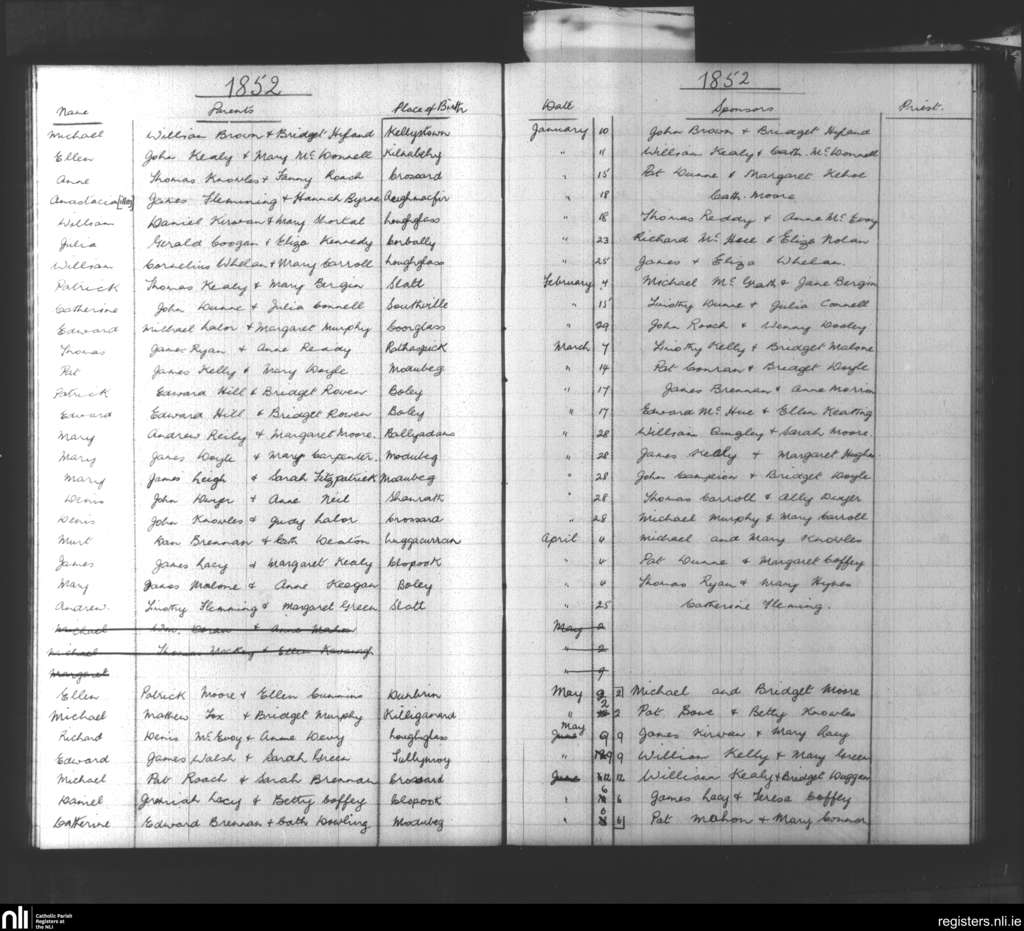 1852
1852
Name Parents Place of Birth Date Sponsors Priest.
Michael William Brown & Bridget Hyland Kellystown January 10 John Brown & Bridget Hyland
Ellen John Kealy & Mary McDonnell Kilnabehy " 11 William Kealy & Cath. McDonnell
Anne Thomas Knowles & Fanny Roach Crossard " 15 Pat Dunne & Margaret Kehoe
Anastacia James Flemming & Hannah Byrne " 18 Cath. Moore
William Daniel Kirwan & Mary Hortal Loughglass " 18 Thomas Reddy & Anne McEvoy
Julia Gerald Coogan & Eliza Kennedy Corbally " 23 Richard & Eliza Nolan
William Cornelius Whelan & Mary Carroll Loughglass " 25 James & Eliza Whelan.
Patrick Thomas Kealy & Mary Bergin Slatt February 4 Michael McGrath & Jane Bergin
Catherine John Dunne & Julia Connell Southville " 15 Timothy Dunne & Julia Connell
Edward Michael Lalor & Margaret Murphy Coorglass " 29 John Roach & Wenny Dooley
Thomas James Ryan & Anne Reddy Rathaspick March 7 Timothy Kelly & Bridget Malone
Pat James Kelly & Mary Doyle Modubeg " 14 Pat Conran & Bridget Doyle
Patrick Edward Hill & Bridget Roven Boley " 17 James Brennan & Anne Morrin
Edward Edward Hill & Bridget Roven Boley " 17 Edward McHue & Ellen Keating
Mary Andrew Reily & Margaret Moore. Ballyadams " 28 William Quigley & Sarah Moore.
Mary James Doyle & Mary Carpenter. Modubeg " 28 James Kelly & Margaret Hughes
Mary James Leigh & Sarah Fitzpatrick Modubeg " 28 John Campion & Bridget Doyle
Denis John Dwyer & Anne Neil Shanrath " 28 Thomas Carroll & Ally Dwyer
Denis John Knowles & Judy Lalor Crossard " 28 Michael Murphy & Mary Carroll
Murt Dan Brennan & Cath Deaton Luggacurran April 4 Michael and Mary Knowles
James James Lacy & Margaret Kealy Clopook " 4 Pat Dunne & Margaret Coffey
Mary James Malone & Anne Keegan Boley " 4 Thomas Ryan & Mary Hynes
Andrew Timothy Flemming & Margaret Green Slatt " 25 Catherine Fleming.
Michael Wm. Doran & Anne Maher May 2
Michael Thomas Mackey & Ellen Kavanagh " 2
Margaret " 9
Ellen Patrick Moore & Ellen Cummins Dunbrin May 2 [2] Michael and Bridget Moore
Michael Mathew Fox & Bridget Murphy Killiganard " 2 2 Pat Bowe & Betty Knowles
Richard Denis McEvoy & Anne Devy Loughglass May June 9 9 James Kirwan & Mary Lacy
Edward James Walsh & Sarah Green Tullymoy " 9 9 William Kelly & Mary Green
Michael Pat Roach & Sarah Brennan Crossard June 12 12 William Kealy & Bridget Duggan
Daniel Jeremiah Lacy & Betty Coffey Clopook " 6 6 James Lacy & Teresa Coffey
Catherine Edward Brennan & Cath Dowling Modubeg " 6 6 Pat Mahon & Mary Connor
nli Catholic Parish
Registers at
the NLI
registers.nli.ie